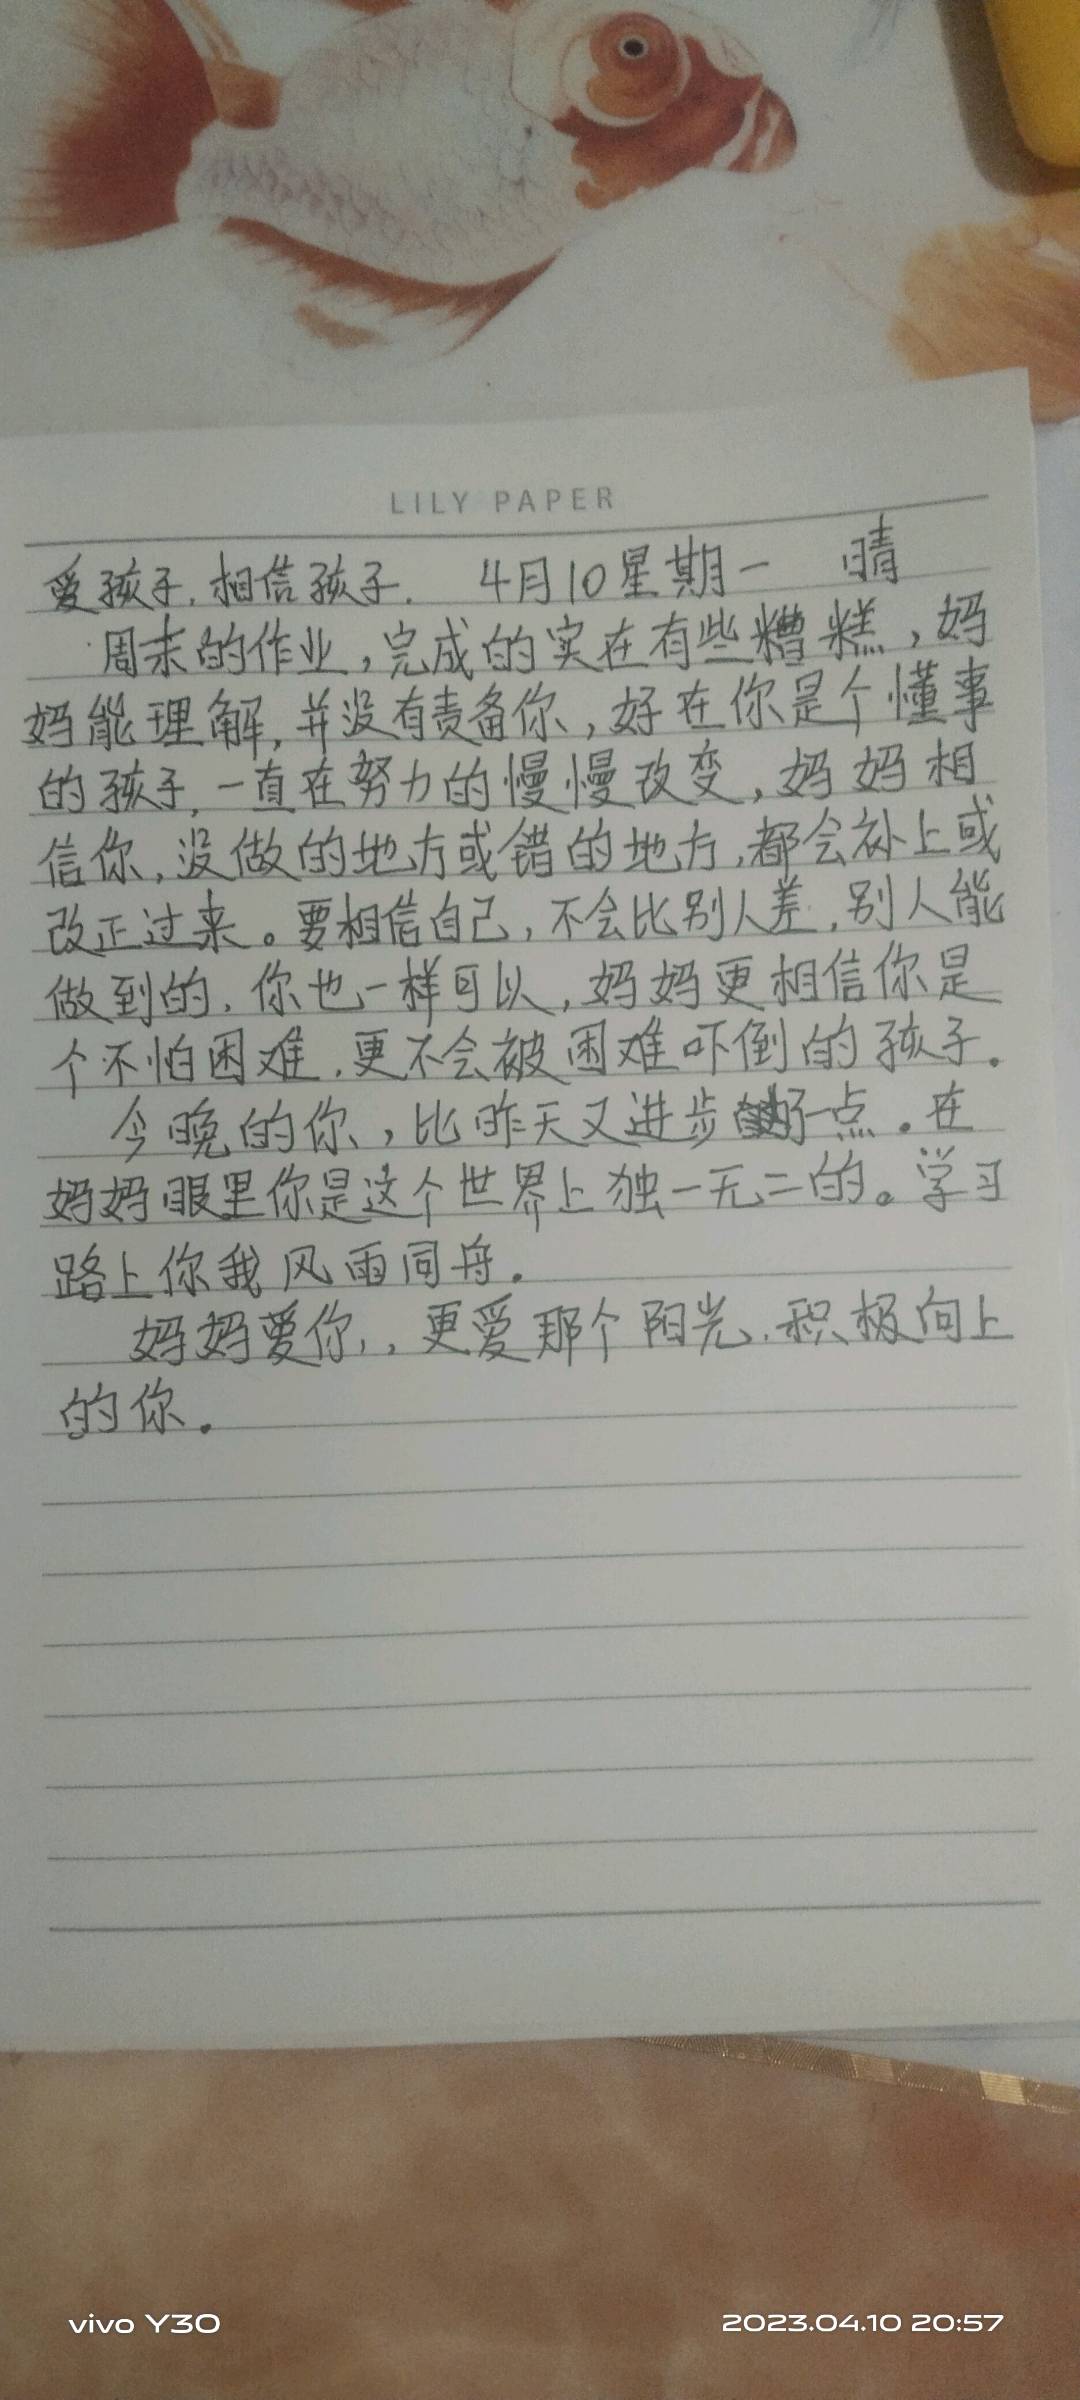 LILY PAPER
爱孩子.相信孩子. 4月10星期一 晴
周末的作业,完成的实在有些糟糕,妈
妈能理解,并没有责备你,好在你是个懂事
的孩子,一直在努力的慢慢改变,妈妈相
信你,没做的地方或错的地方,都会补上或
改正过来。要相信自己,不会比别人差,别人能
做到的,你也一样可以,妈妈更相信你是
个不怕困难,更不会被困难吓倒的孩子。
今晚的你,比昨天又进步好一点。在
妈妈眼里你是这个世界上独一无二的。学习
路上你我风雨同舟。
妈妈爱你,,更爱那个阳光.积极向上
的你。
vivo Y30
2023.04.10 20:57